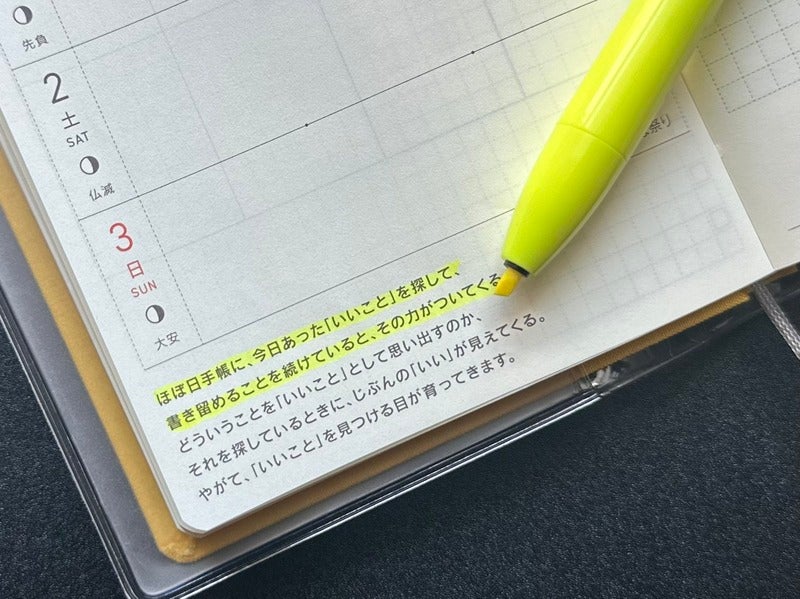 先負
2
土
SAT
仏滅
3
日
SUN
大安
祭り
ほぼ日手帳に、今日あった「いいこと」を探して、
書き留めることを続けていると、その力がついてくる
どういうことを「いいこと」として思い出すのか、
それを探しているときに、じぶんの「いい」が見えてくる。
やがて、「いいこと」を見つける目が育ってきます。